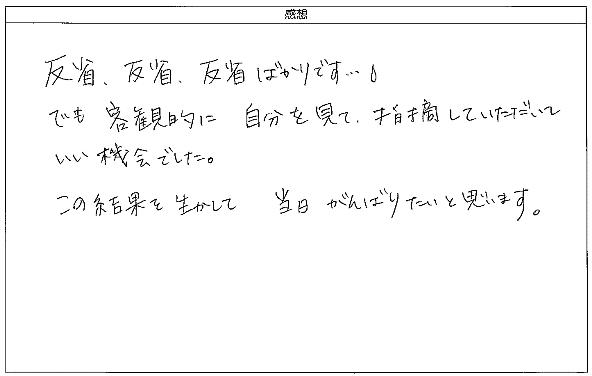 感想
反省、反省、反省ばかりです…。
でも 客観的に 自分を見て、指摘していただいて
いい機会でした。
この結果を生かして 当日 がんばりたいと思います。